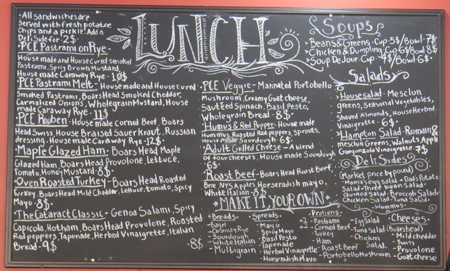 -All sandwiches are
Served with fresh potato
chips and a pickle! Add a
Deli Side for 2$
-PCE Pastrami on Rye-
House made and House cured smoked
Pastrami, Spicy Brown Mustard,
House made Caraway Rye - 10$
-PCE Pastrami Melt - House made and House cured
smoked Pastrami, Boars Head Smoked Cheddar,
Carmalized Onions, Wholegrain Mustard, House
made Caraway Rye - 11$
-PCE Reuben - House made corned Beef, Boars
Head Swiss, House Braised Sauer Kraut, Russian
dressing, House made Caraway Rye - 12$
-Maple Glazed Ham - Boars Head Maple
Glazed Ham, Boars Head Provolone, Lettuce,
Tomato, Honey Mustard 8$
-Oven Roasted Turkey - Boars Head Roasted
Turkey, Boars Head Mild Cheddar, Lettuce, tomato, Spicy
Mayo - 8$
-The Cataract Classic - Genoa Salami, Spicy
Capicola, Hotham, Boars Head Provolone, Roasted
Red peppers, Tapenade, Herbed Vinaigrette, Italian
Bread - 9$
LUNCH
-PCE Veggie - Marinated Portobello
Mushroom, Creamy Goat cheese,
Sauteed Spinach, Basil Pesto,
Wholegrain Bread - 8$
-Humus & Red Pepper - House made
Hummus, Roasted Red peppers, sprouts,
House made Sourdough - 6$
-Adult Grilled Cheese - A blend
of four cheeses, House made Sourdough
6$
-Roast Beef - Boars Head Roast Beef,
Brie, NY's Apples, Horseradish mayo,
White Italian - 8$
MAKE IT YOUR OWN
8$
-Breads-
-Rye
-Sourdough
-White Italian
-Multigrain
-Spreads-
-Mayo
-Spicy Mayo
-Basil Pesto
-Tapenade
-Herbed Vinaigrette
-Horseradish Mayo
-Proteins-
-Pastrami
-Corned Beef
-Turkey
-Ham
-Roast Beef
-Portobello Mushroom
-Tuna Salad
-Chicken
Salad
-Cheeses-
-Swiss
-Mild cheddar
-Provolone
-Goat cheese
Soups
-Beans & Greens - Cup 5$/Bowl 7$
-Chicken & Dumpling - Cup 6$/Bowl 8$
-Soup De Jour - Cup 4$/Bowl 6$
Salads
-House salad - Mesclun
greens, Seasonal Vegetables,
Almonds, House Herbed
Vinaigrette 6$
-Hampton Salad - Romain &
Mesclun Greens, Walnuts, Apple
Gorgonzola Vinaigrette 7$
Deli Sides
(Market price by pound)
-Macaroni salad -Potato
Salad -Three bean salad
-Broccoli Salad
-Chicken Salad -Tuna Salad
-Hummus